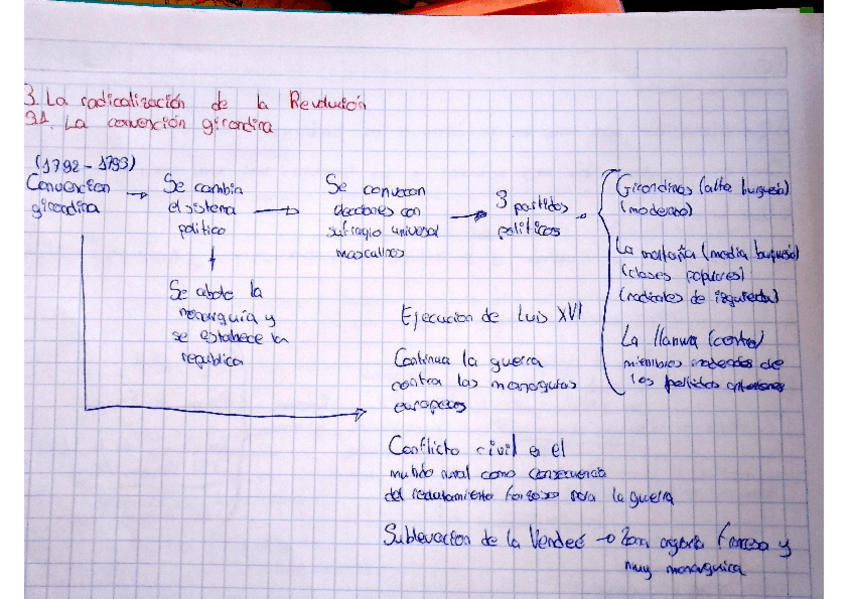 3. La radicalización de la Revolución
3.1. La convención girondina
(1792 - 1793)
Convención
girondina
Se cambia
el sistema
político
Se abole la
monarquía y
se establece la
república
Se convocan
elecciones con
sufragio universal
masculino
3 partidos
políticos
Girondinos (alta burguesía)
(moderado)
La montaña (media burguesía)
(clases populares)
(radicales de izquierda)
La llanura (centro)
miembros moderados de
los partidos anteriores
Ejecución de Luis XVI
Continua la guerra
contra las monarquías
europeas
Conflicto civil en el
mundo rural como consecuencia
del reclutamiento forzoso para la guerra
Sublevación de la Vendeé → Zona agraria francesa y
muy monarquica